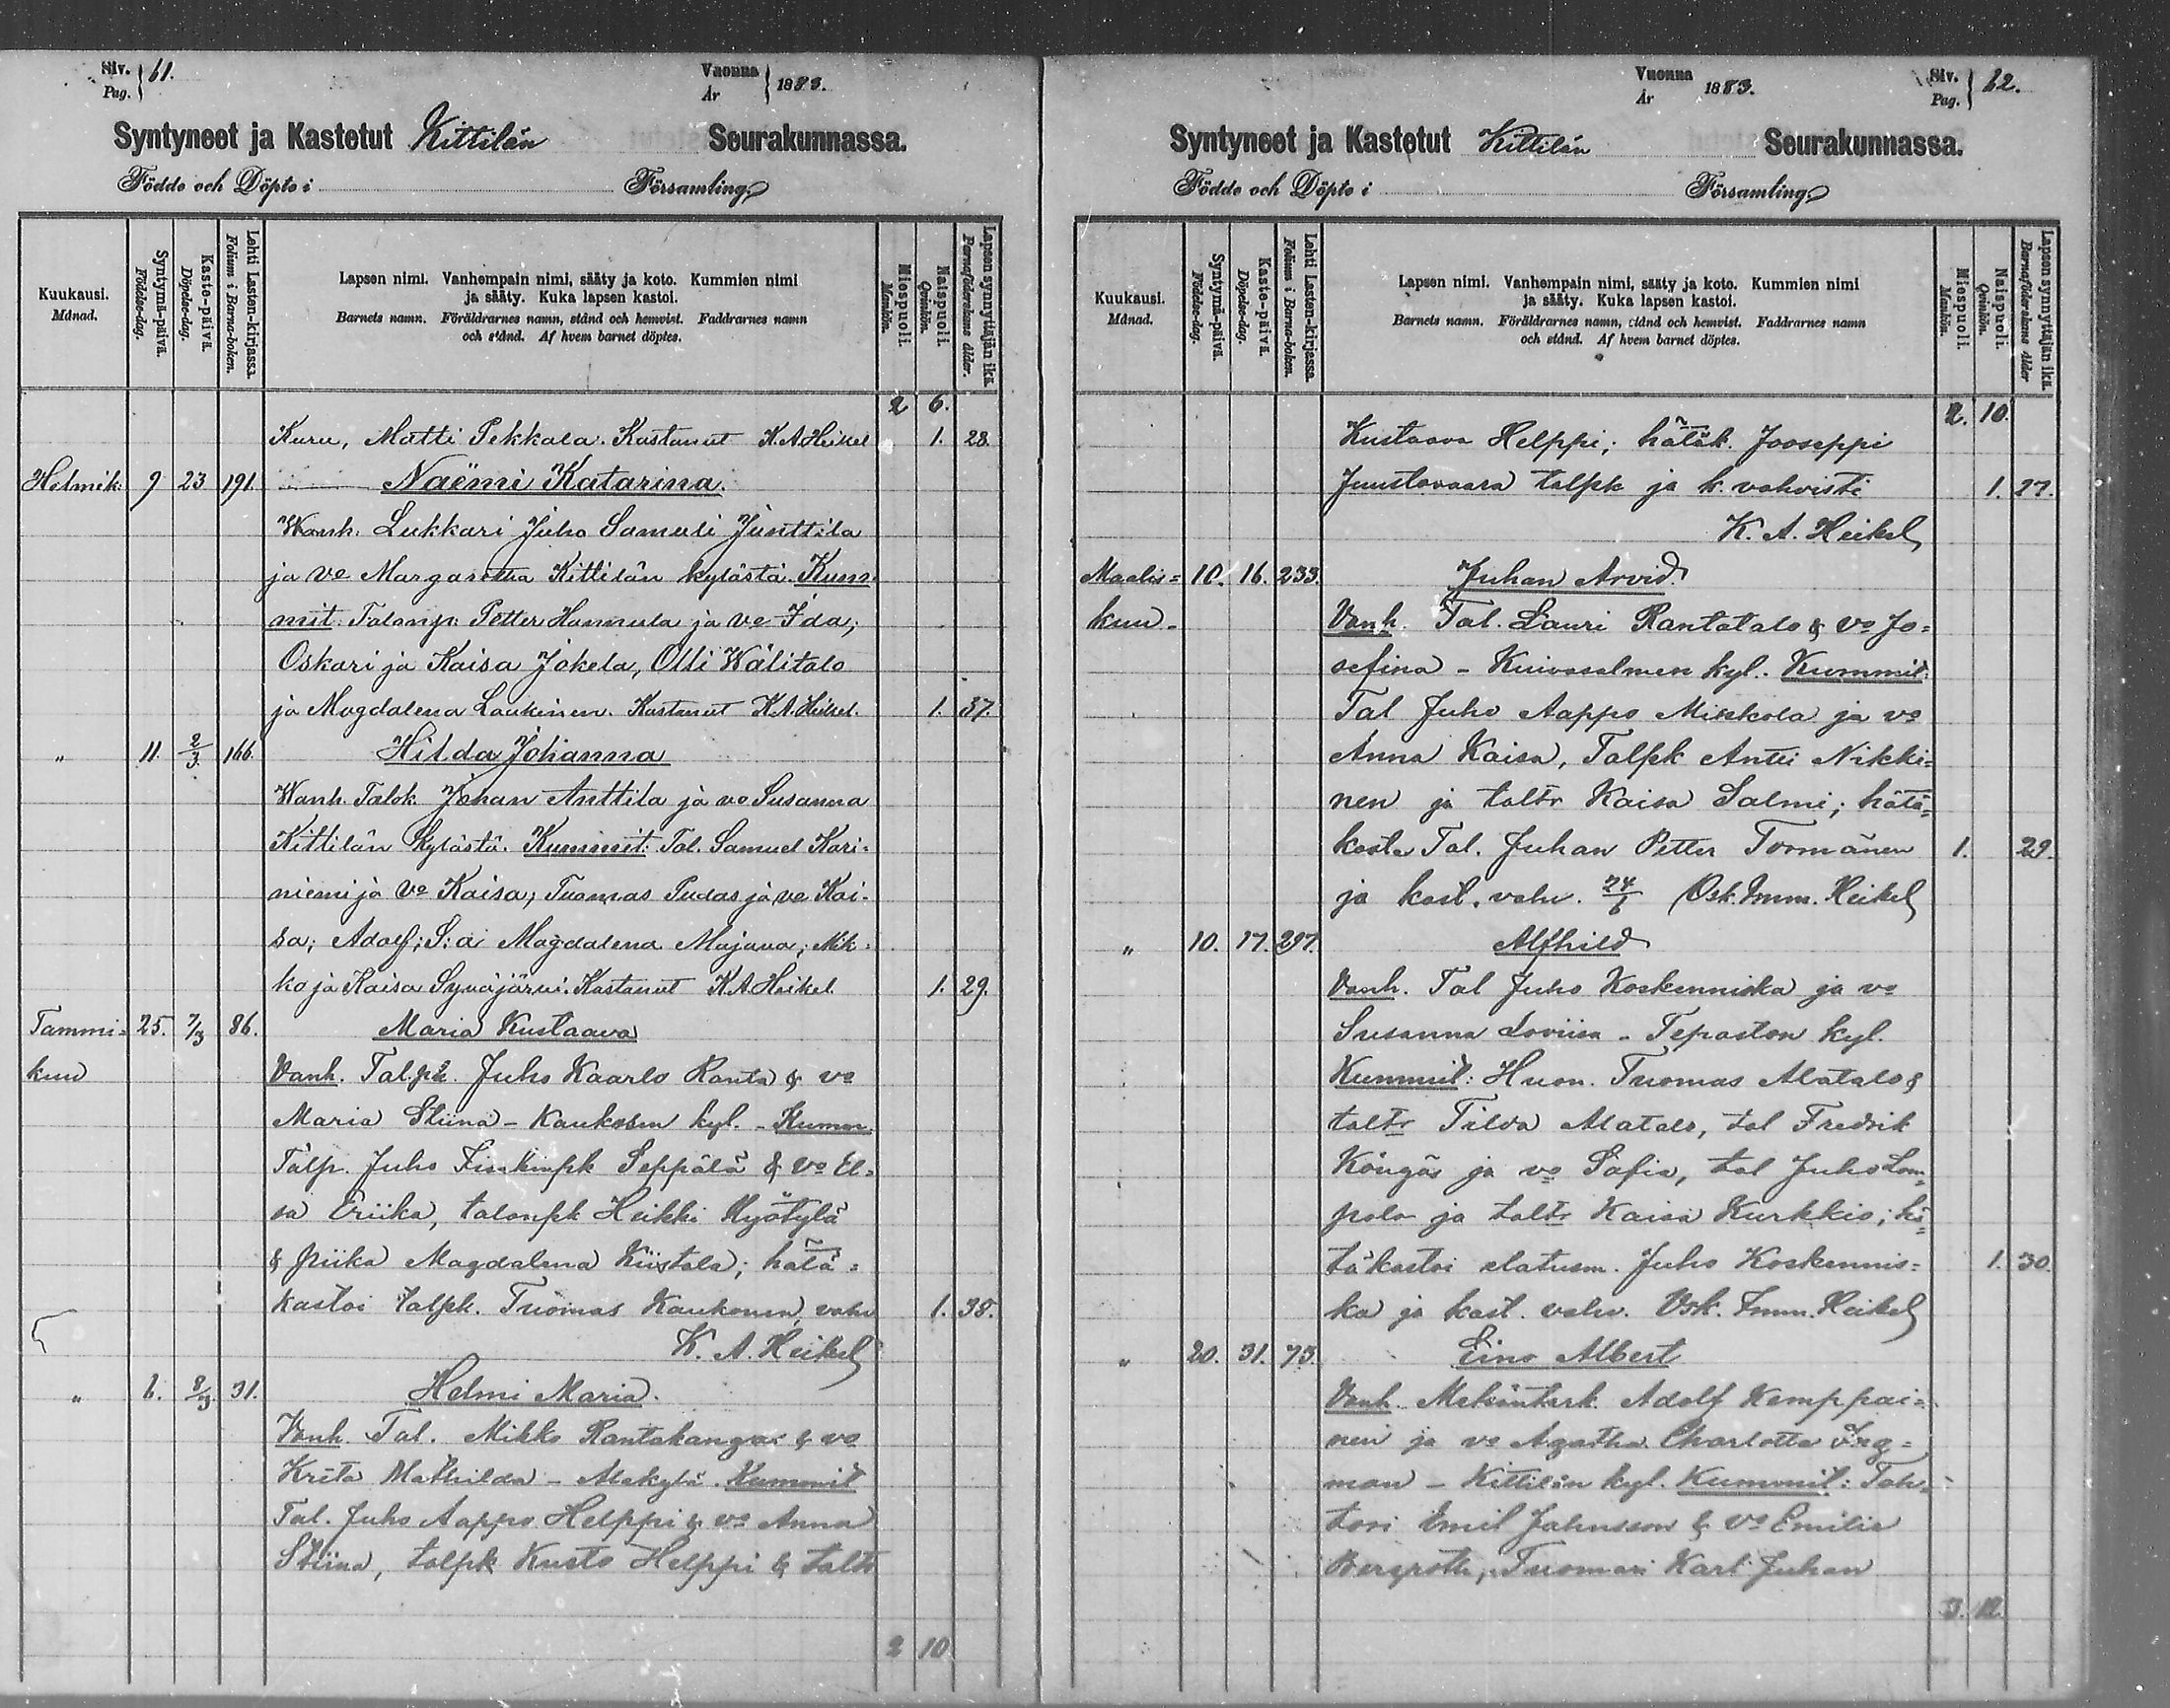 Siv. Pag. 61. Vuonna År 1883.
Syntyneet ja Kastetut Kittilän Seurakunnassa.
Födde och Döpte i Församling
Kuukausi. Månad.
Syntymä-päivä. Födelse-dag.
Kaste-päivä. Döpelse-dag.
Lehti Lasten-kirjassa. Folium i Barna-boken.
Lapsen nimi. Vanhempain nimi, sääty ja koto. Kummien nimi
ja sääty. Kuka lapsen kastoi.
Barnets namn. Föräldrarnes namn, stånd och hemvist. Faddrarnes namn
och stånd. Af hvem barnet döptes.
Miespuoli. Mankön.
Naispuoli. Qvinkön.
Lapsen synnyttäjän ikä. Barnaföderskans ålder.
2 6.
Kuru, Matti Pekkala. Kastanut K.A.Heikel 1. 28.
Helmik. 9 23 191. Naëmi Katarina.
Wanh. Lukkari Juho Samuli Junttila
ja vo Margareetta Kittilän kylästä. Kum-
mit: Talonp. Petter Hannula ja vo Ida;
Oskari ja Kaisa Jokela, Olli Wälitalo
ja Magdalena Laukinen. Kastanut K.A.Heikel. 1. 37.
" 11. 2/3. 166. Hilda Johanna
Wanh. Talok. Johan Anttila ja vo Susanna
Kittilän Kylästä. Kummit: Tal. Samuel Kari-
niemi ja vo Kaisa; Tuomas Pudas ja vo Kai-
sa; Adolf; S:a Magdalena Majava; Mik-
ko ja Kaisa Syväjärvi. Kastanut K.A.Heikel. 1. 29.
Tammi= 25. 7/3 86. Maria Kustaava
kuu Vanh. Tal.pk. Juho Kaarlo Ranta & vo
Maria Stiina – Kaukosen kyl. – Kumm.
Talp. Juho Seppälä & vo El=
sa Eriika, talonpk Heikki Hyötylä
& piika Magdalena Kiistala; hätä=
kastoi talpk. Tuomas Kaukonen, vahv 1. 38.
K. A. Heikel
" 6. 8/3. 31. Helmi Maria.
Vanh. Tal. Mikko Rantakangas & vo
Krēta Mathilda – Alakylä. Kummit
Tal. Juho Aappo Helppi & vo Anna
Stiina, talpk Kusto Helppi & taltr
2 10.
Vuonna År 1883. Siv. Pag. 62.
Syntyneet ja Kastetut Kittilän Seurakunnassa.
Födde och Döpte i Församling
Kuukausi. Månad.
Syntymä-päivä. Födelse-dag.
Kaste-päivä. Döpelse-dag.
Lehti Lasten-kirjassa. Folium i Barna-boken.
Lapsen nimi. Vanhempain nimi, sääty ja koto. Kummien nimi
ja sääty. Kuka lapsen kastoi.
Barnets namn. Föräldrarnes namn, stånd och hemvist. Faddrarnes namn
och stånd. Af hvem barnet döptes.
Miespuoli. Mankön.
Naispuoli. Qvinkön.
Lapsen synnyttäjän ikä. Barnaföderskans ålder
2. 10.
Kustaava Helppi; hätäk. Jooseppi
Juustovaara talpk ja k. vahvisti 1. 27.
K. A. Heikel
Maalis= 10. 16. 233. Juhan Arvid.
kuu. Vanh. Tal. Lauri Rantatalo & vo Jo=
sefina – Kuivasalmen kyl. Kummit:
Tal Juho Aappo Miekkola ja vo
Anna Kaisa, Talpk Antti Nikki=
nen ja taltr Kaisa Salmi; hätä=
kaste Tal. Juhan Petter Tormänen 1. 29.
ja kast. vahv. 24/6 Osk. Imm. Heikel
" 10. 17. 297. Alfhild
Vanh. Tal Juho Koskenniska ja vo
Susanna Loviisa – Tepaston kyl.
Kummit: Huon. Tuomas Alatalo &
taltr Tilda Alatalo, tal Fredrik
Köngäs ja vo Sofia, tal Juho Lom
polo ja taltr Kaisa Kurkkio; hä=
täkastoi elatusm. Juho Koskennis= 1. 30.
ka ja kast. vahv. Osk. Imm. Heikel
" 20. 31. 75. Eino Albert
Vanh. Metsäntark. Adolf Kemppai=
nen ja vo Agatha Charlotta Ing=
man – Kittilän kyl. Kummit: Toh=
tori Emil Jahnsson & vo Emilia
Bergroth, Tuomari Karl Juhan
3. 12.